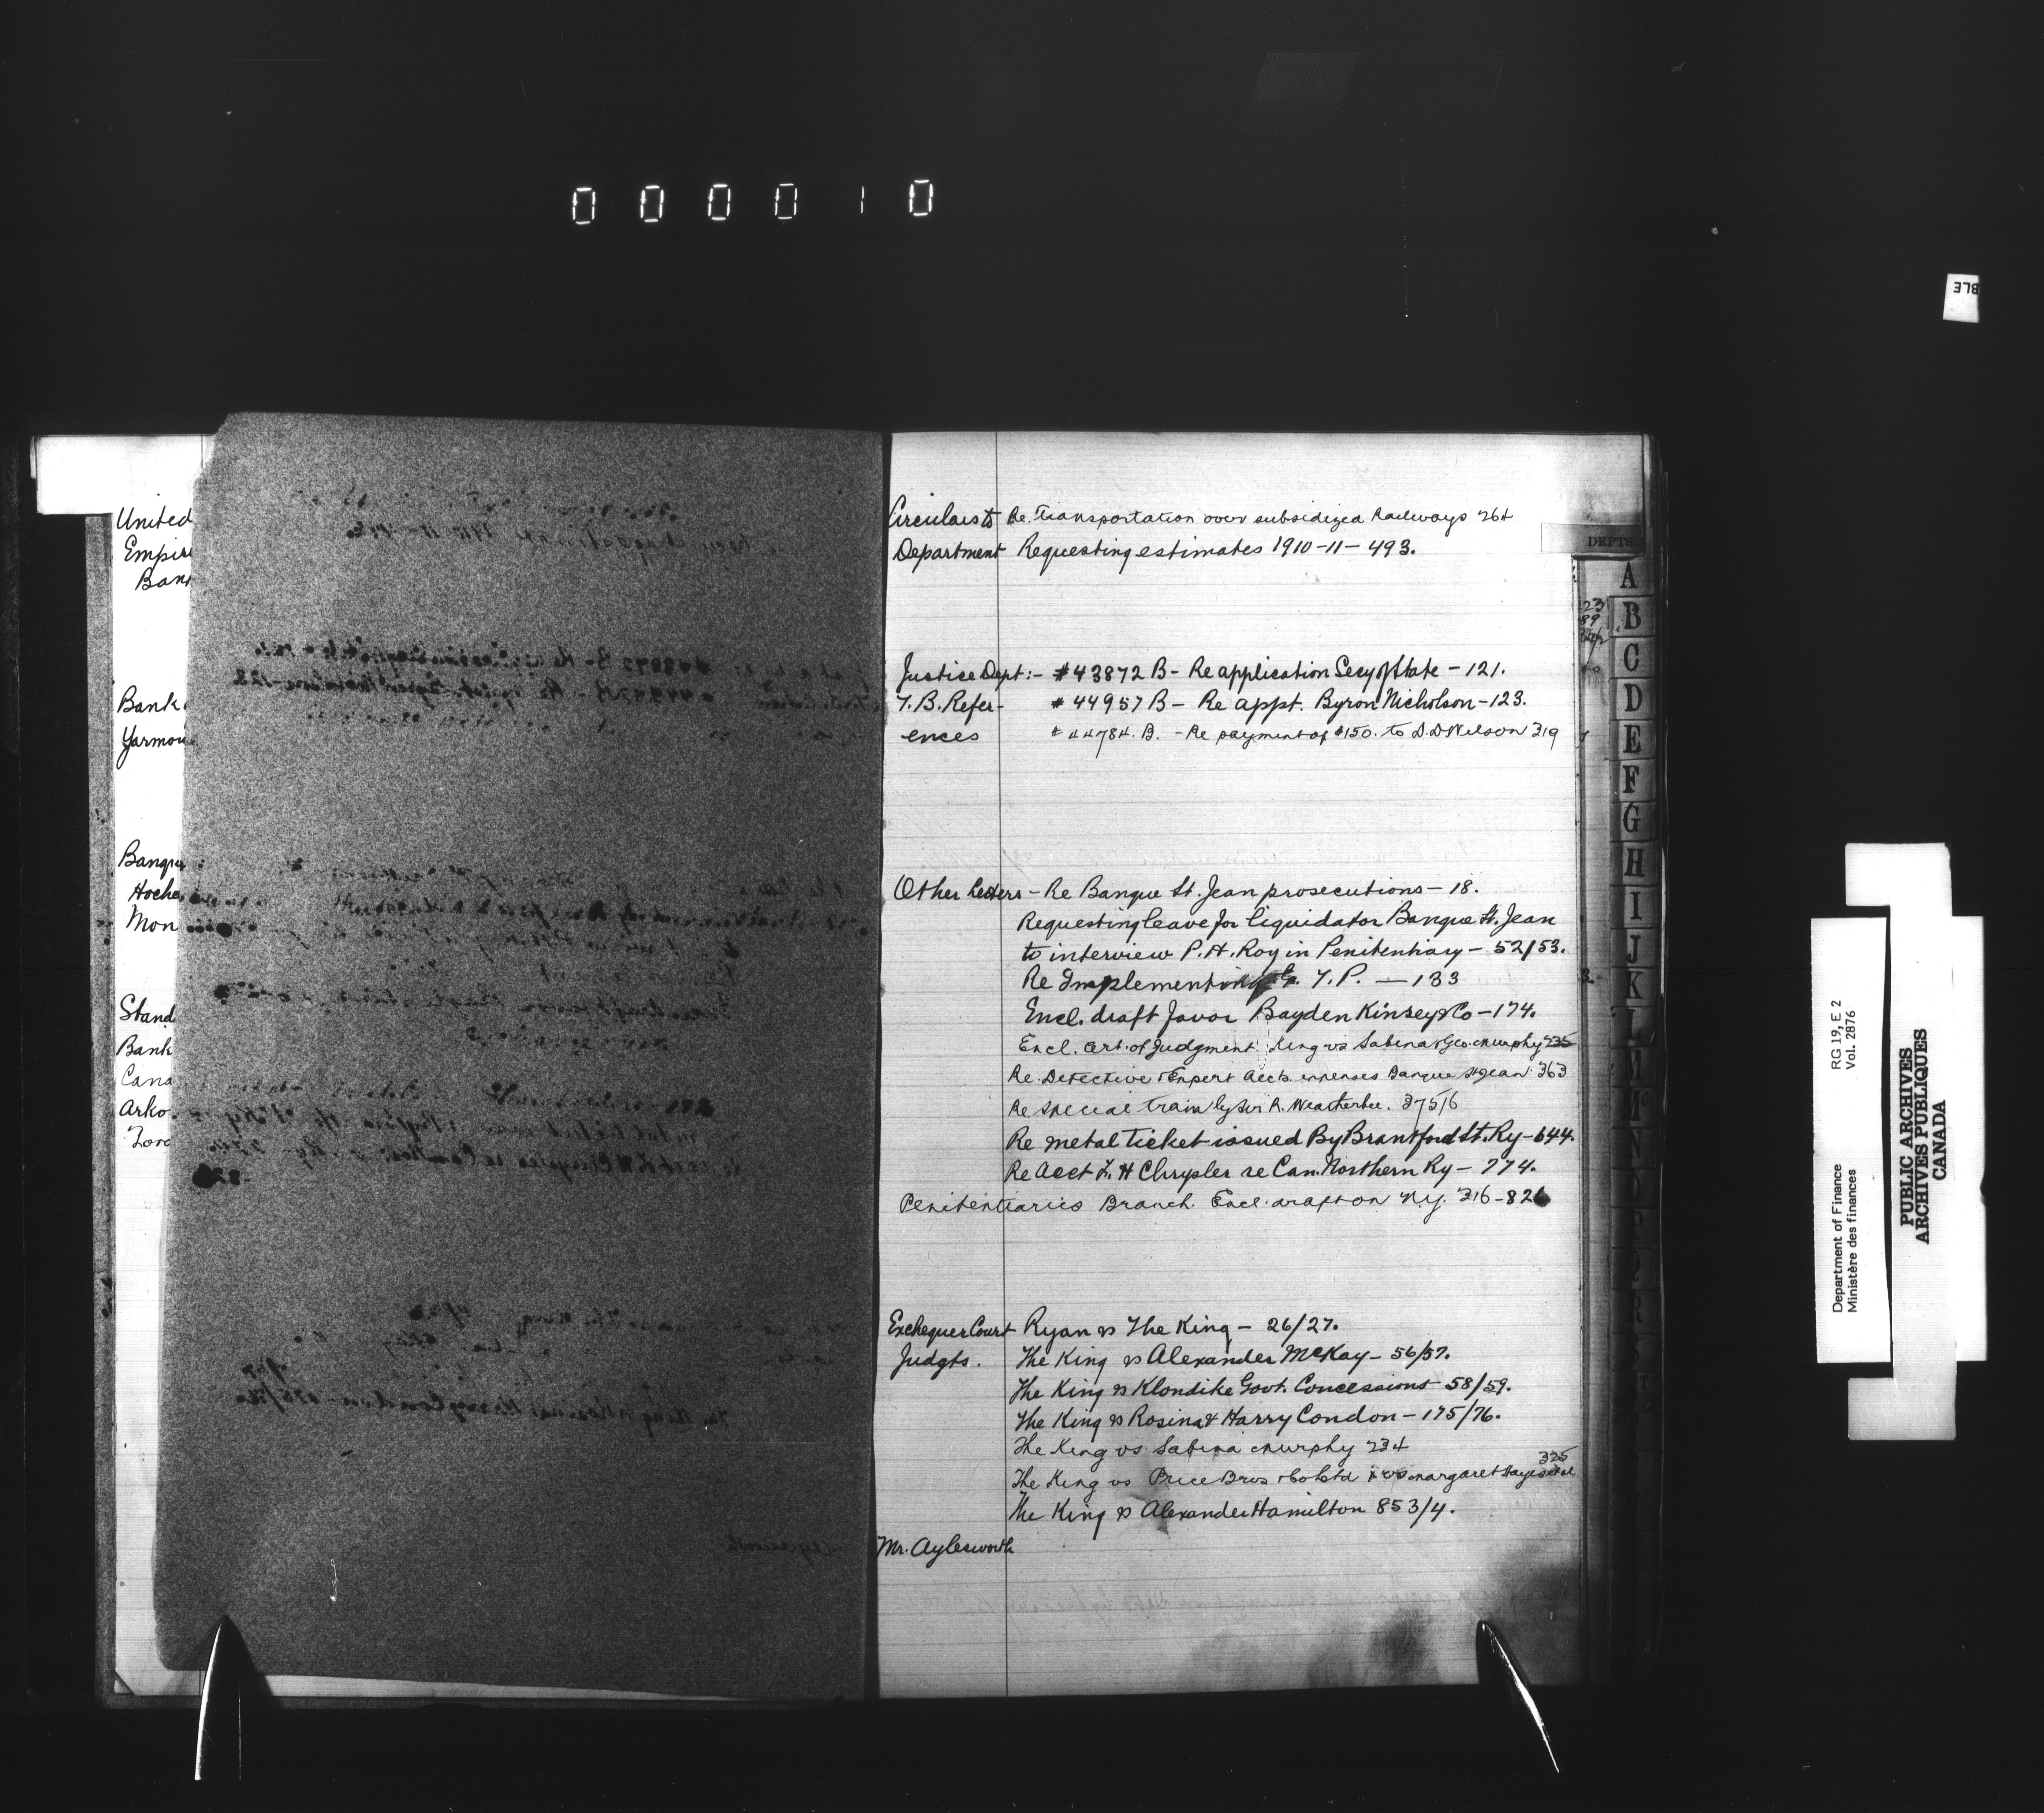 000010
United
Empire
Ban
Bank
Yarmou
Banque
Hoche
Mon
Stand
Bank
Cana
Arko
Circulars to Re. Transportation over subsidized Railways 264
Department Requesting estimates 1910-11- 493.
Justice Dept:- #43872 B- Re application Secy of State - 121.
T. B. Refer- #44957 B- Re appt. Byron Nicholson-123.
ences #44784. B. - Re payment of $150. to D.D Wilson 319
Other Letters - Re Banque St. Jean prosecutions - 18.
Requesting leave for liquidator Banque St. Jean
to interview P. H. Roy in Penitentiary - 52/53.
Re Implementing G. T. P. - 133
Encl. draft favor Bayden Kinsey & Co - 174.
Encl. Cert. of Judgment. King vs Sabina & Geo. Murphy 235
Re. Detective & Expert Accts. expenses Banque St Jean. 363
Re special train by Sir R. Weatherbee. 375/6
Re metal ticket issued By Brantford St. Ry-644.
Re Acct L. H Chrysler re Can. Northern Ry - 774.
Penitentiaries Branch. Encl. draft on N.Y. 316-826
Exchequer Court Ryan vs The King - 26/27.
Judgts. The King vs Alexander McKay - 56/57.
The King vs Klondike Govt. Concessions 58/59.
The King vs Rosina & Harry Condon - 175/76.
The King vs Sabina Murphy 234
325
The King vs Price Bros & Co Ltd & vs Margaret Hayes et al
The King vs Alexander Hamilton 853/4.
Mr. Aylesworth
DEPTS.
A
B
C
D
E
F
G
H
I
J
K
L
M
Mc
N
O
P
Q
R
BLE
Department of Finance
Ministère des finances
RG 19, E 2
Vol. 2876
PUBLIC ARCHIVES
ARCHIVES PUBLIQUES
CANADA